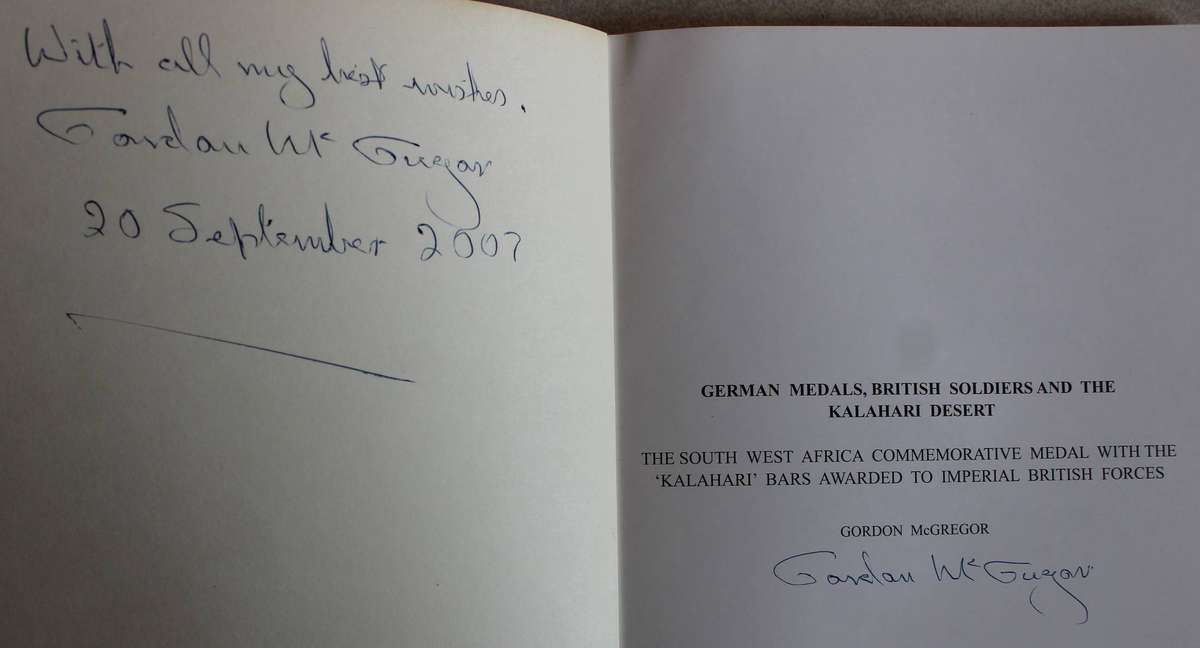 With all my best wishes.
Gordon McGregor
20 September 2007
GERMAN MEDALS, BRITISH SOLDIERS AND THE
KALAHARI DESERT
THE SOUTH WEST AFRICA COMMEMORATIVE MEDAL WITH THE
‘KALAHARI’ BARS AWARDED TO IMPERIAL BRITISH FORCES
GORDON McGREGOR
Gordon McGregor